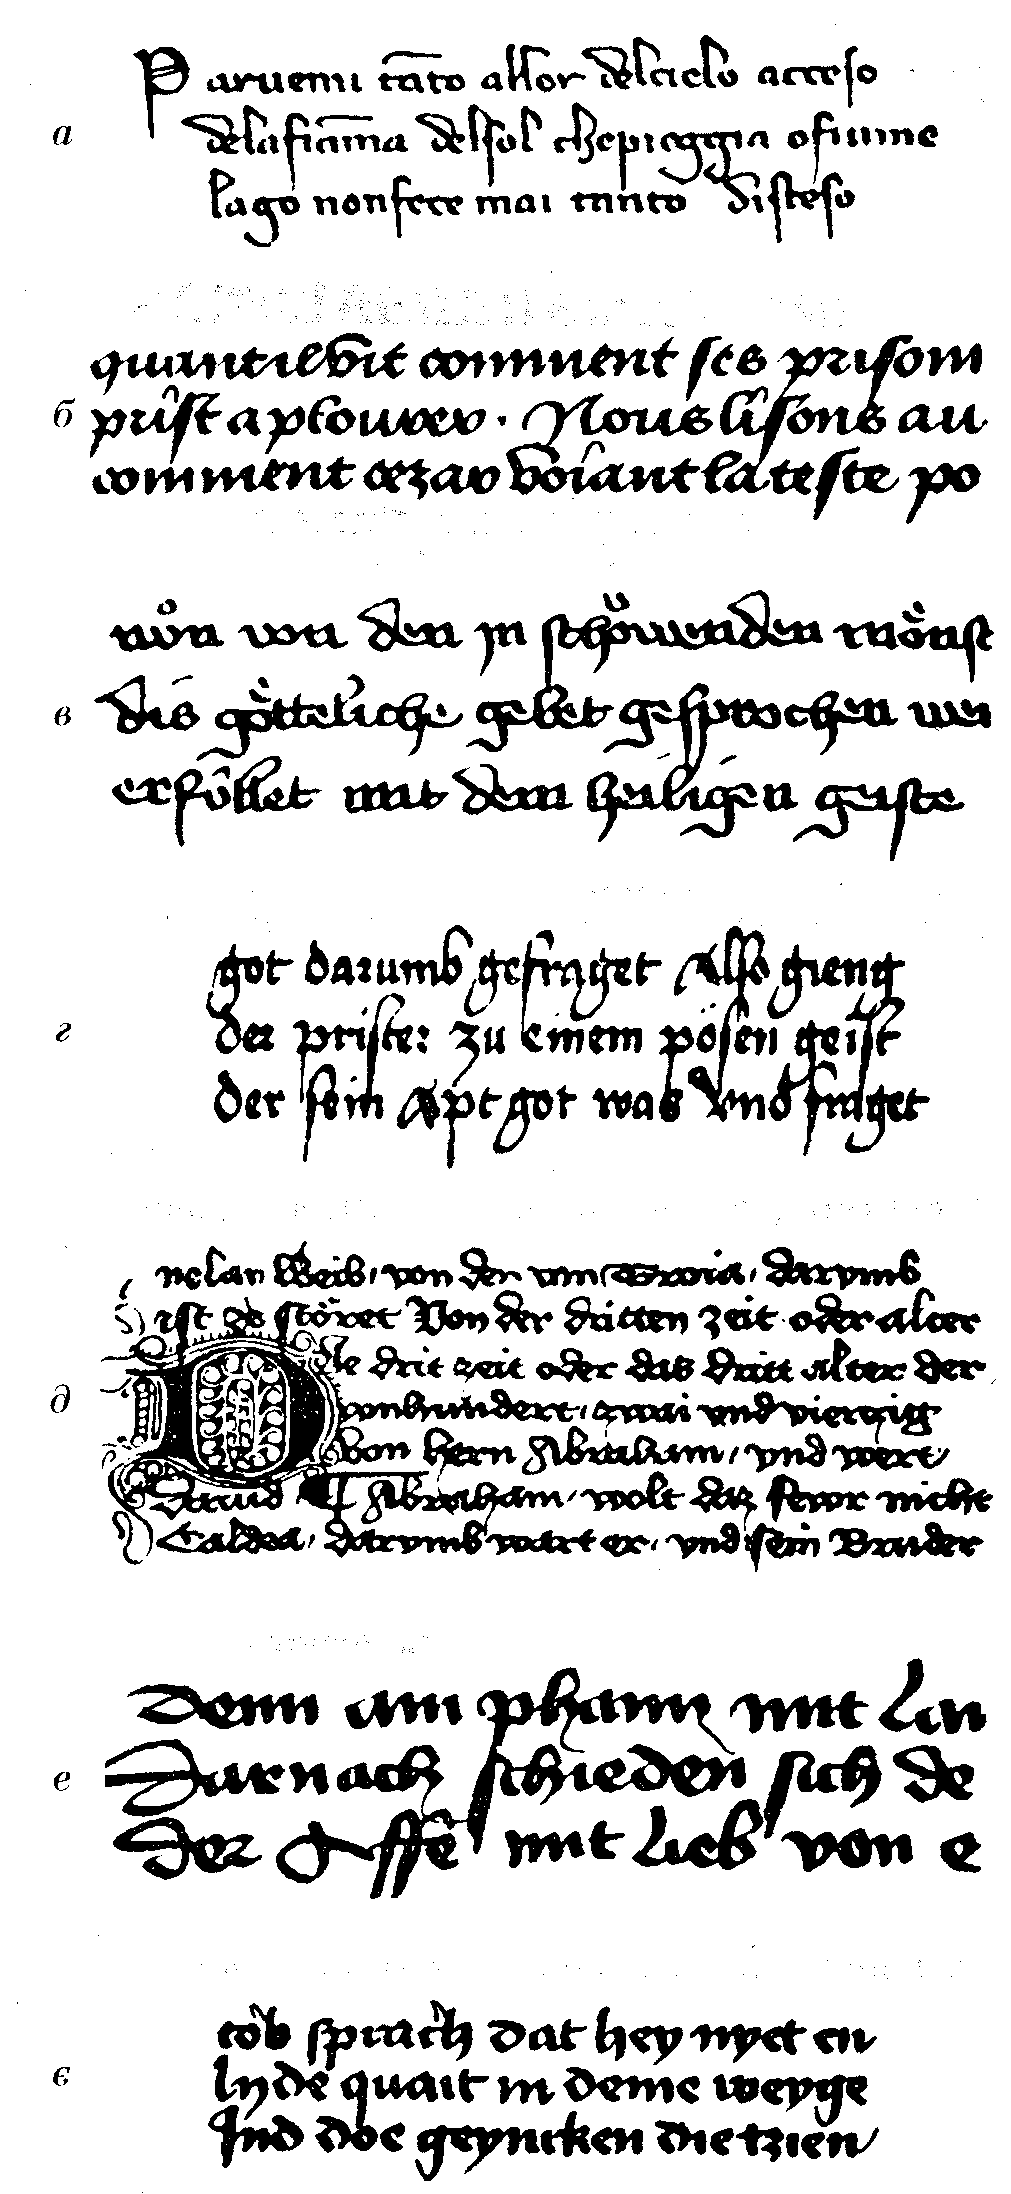 Paruemi tāto allor delcielo acceso
а
delafiāma delsol chepioggia ofiume
lago nonfece mai tanto disteso
quant il vit comment ses prisom
б prist a plourer. Nous lisons au
comment cezar voiant la teste po
nůn von den in schöwenden mönst
в dis götteliche gebet gesprochen wei
erfüllet mit dem heiligen geiste
got darumb gefraget Also gieng
г der prister zu einem pösen geist
der sein Aptgot was vnd fraget
Weib, von der von Troia, darvmb
ist zerstöret Von der dritten zeit oder alter
Die drit zeit oder das dritt alter der
д vnd vierczig
von hern Abraham, vnd wert
Dauid ¶ Abraham, wolt daz fewr nicht
Caldea, darvmb wart er, vnd sein Bruder
Denn am phann mit Lau
е Darnach schieden sich de
der Gysse mit Lieb von e
sprach dat hey nyet en
є Inde quait in deme weyge
Ind doe geyncken die tzien